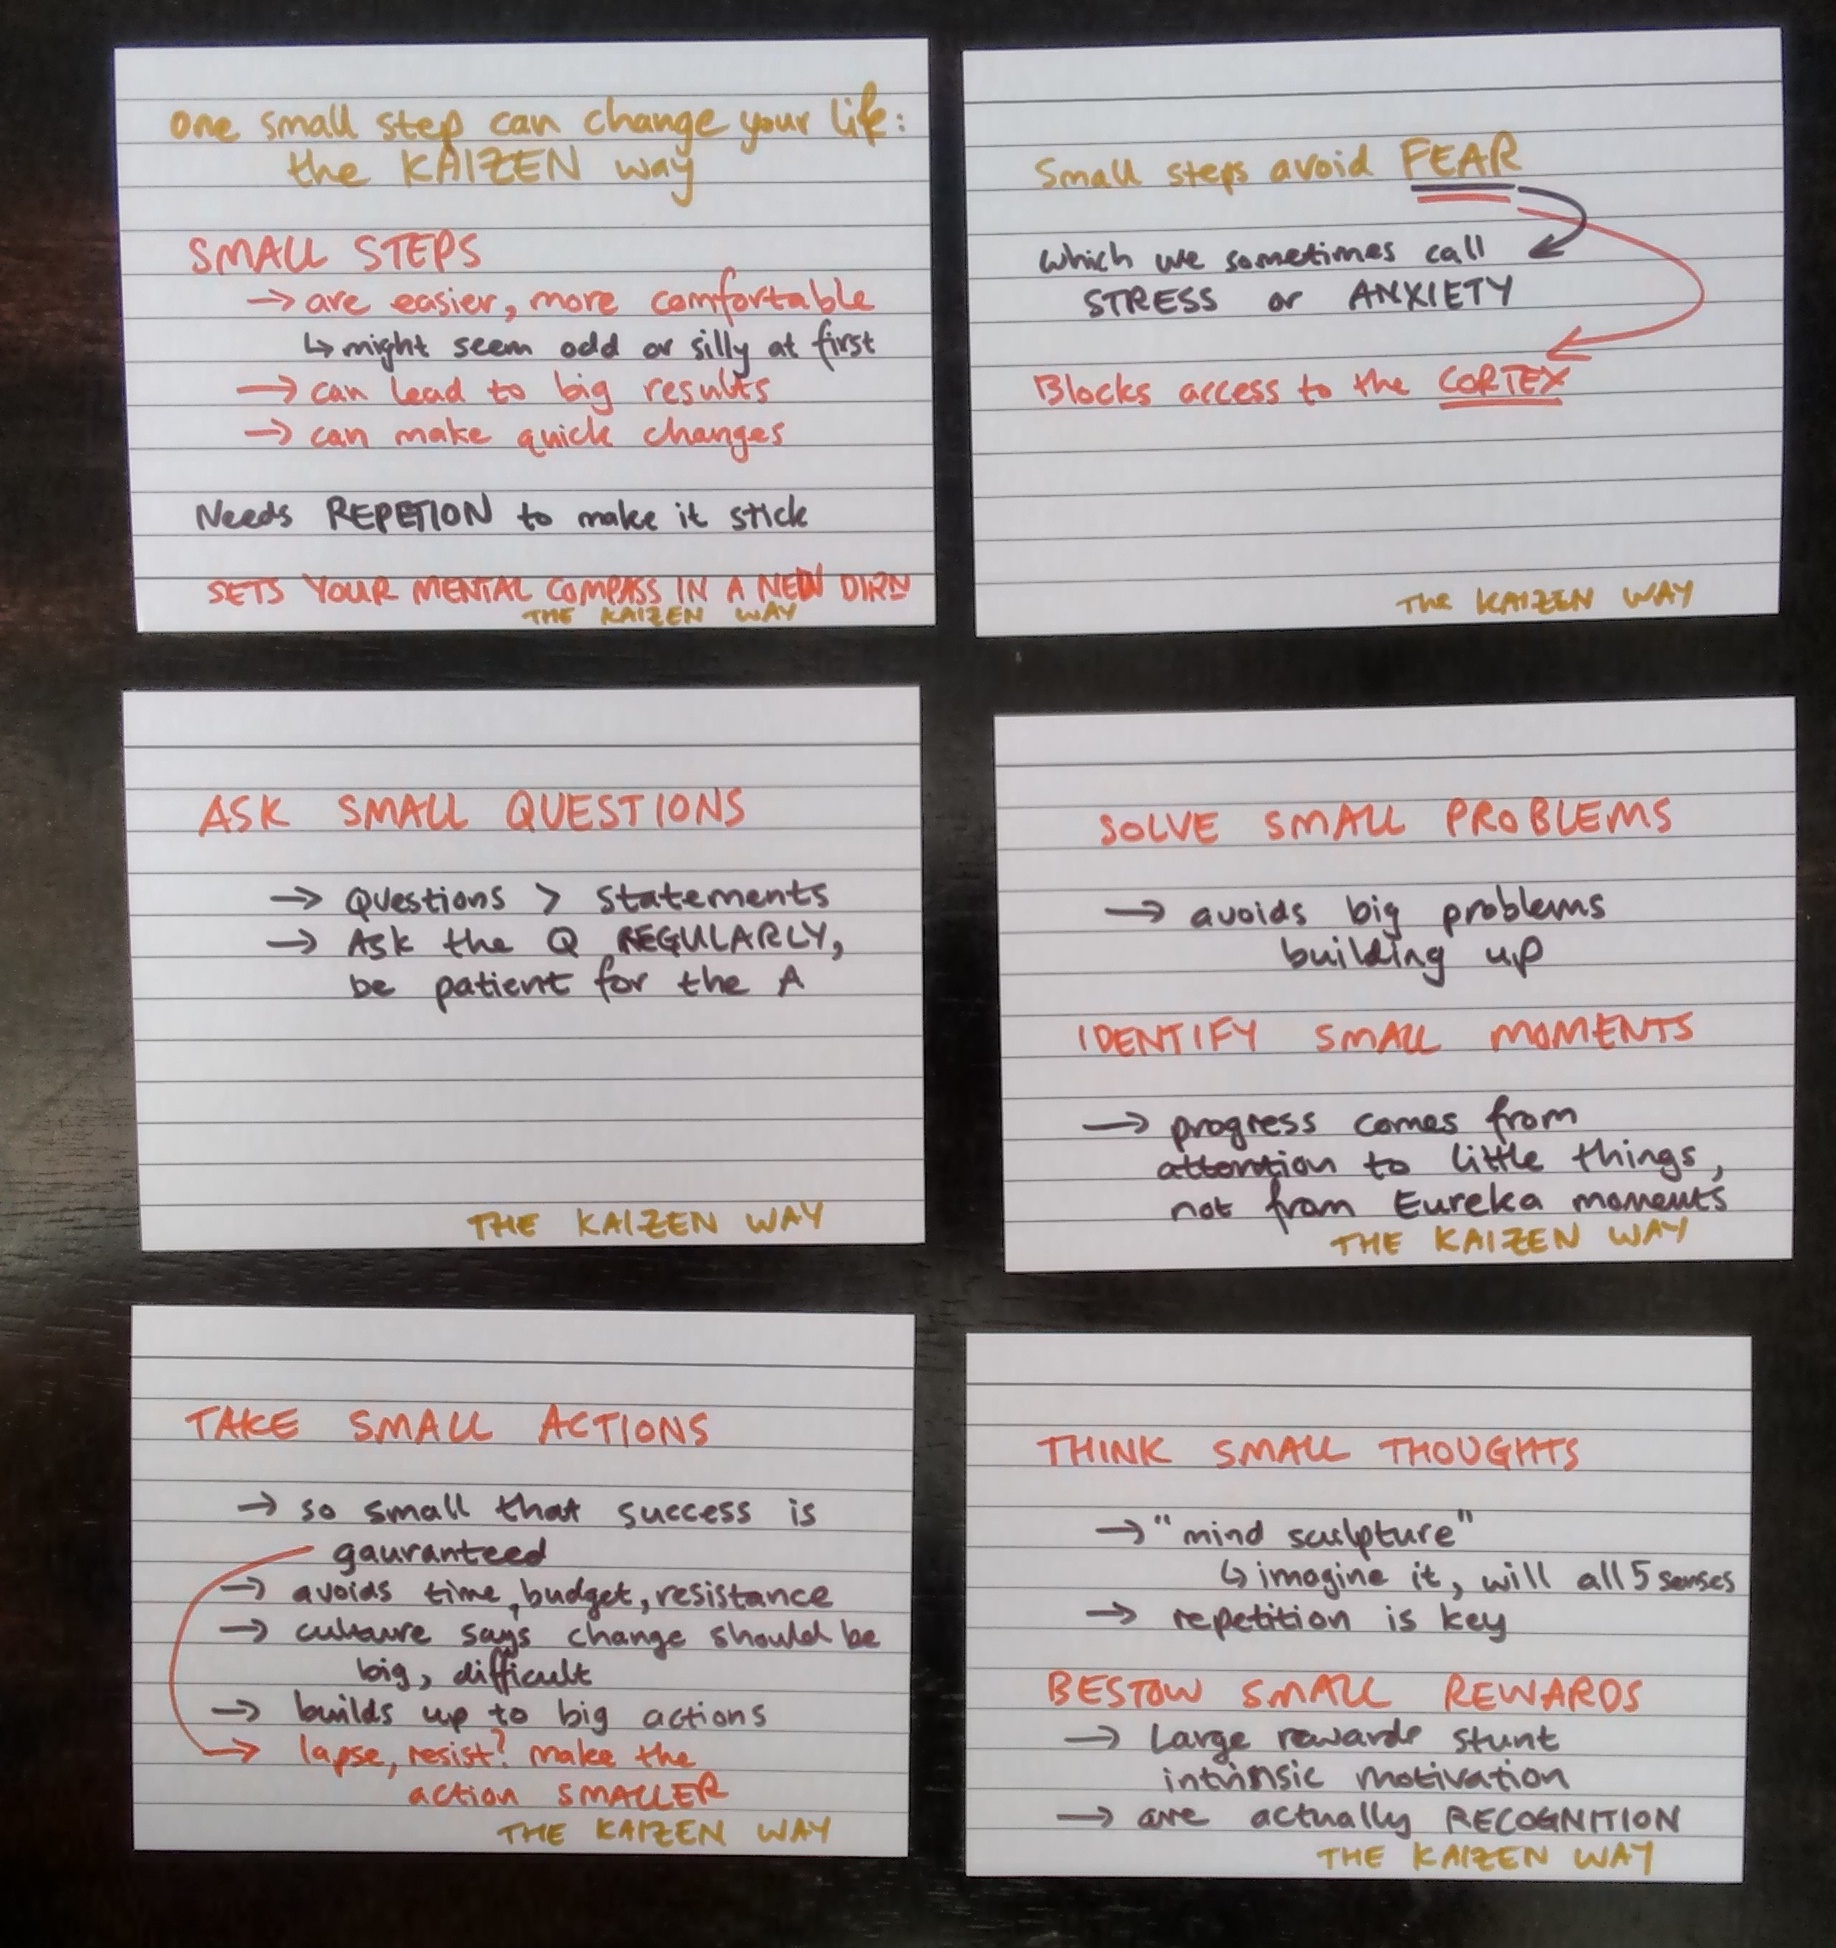 one small step can change your life:
the KAIZEN way
SMALL STEPS
→ are easier, more comfortable
↳ might seem odd or silly at first
→ can lead to big results
→ can make quick changes
Needs REPETION to make it stick
SETS YOUR MENTAL COMPASS IN A NEW DIRN
THE KAIZEN WAY
Small steps avoid FEAR
which we sometimes call
STRESS or ANXIETY
Blocks access to the CORTEX
THE KAIZEN WAY
ASK SMALL QUESTIONS
→ Questions > statements
→ Ask the Q REGULARLY,
be patient for the A
THE KAIZEN WAY
SOLVE SMALL PROBLEMS
→ avoids big problems
building up
IDENTIFY SMALL MOMENTS
→ progress comes from
attention to little things,
not from Eureka moments
THE KAIZEN WAY
TAKE SMALL ACTIONS
→ so small that success is
gauranteed
→ avoids time, budget, resistance
→ culture says change should be
big, difficult
→ builds up to big actions
→ lapse, resist? make the
action SMALLER
THE KAIZEN WAY
THINK SMALL THOUGHTS
→ "mind sculpture"
↳ imagine it, will all 5 senses
→ repetition is key
BESTOW SMALL REWARDS
→ Large rewards stunt
intrinsic motivation
→ are actually RECOGNITION
THE KAIZEN WAY